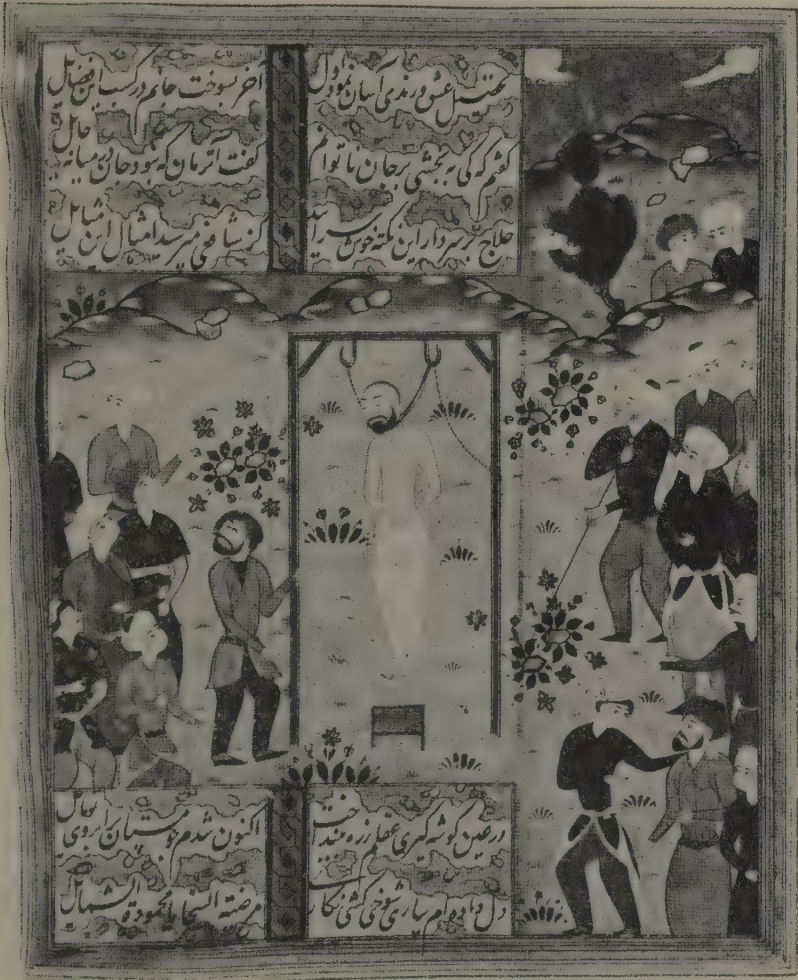 تحصیل عشق و رندی آسان نمود اول آخر بسوخت جانم در کسب این فضایل
گفتم که کی به بخشی بر جان ناتوانم گفت آنزمان که نبود جان در میانه حایل
حلاج بر سر دار این نکته خوش سراید کز شافعی مپرسید امثال این مسایل
در عین گوشه گیری عقلم ز ره بینداخت اکنون شدم چو مستان بر ابروی تو مایل
دل داده‌ام بیاری شوخی کشی نگاری مرضیة السجایا محمودة الشمایل